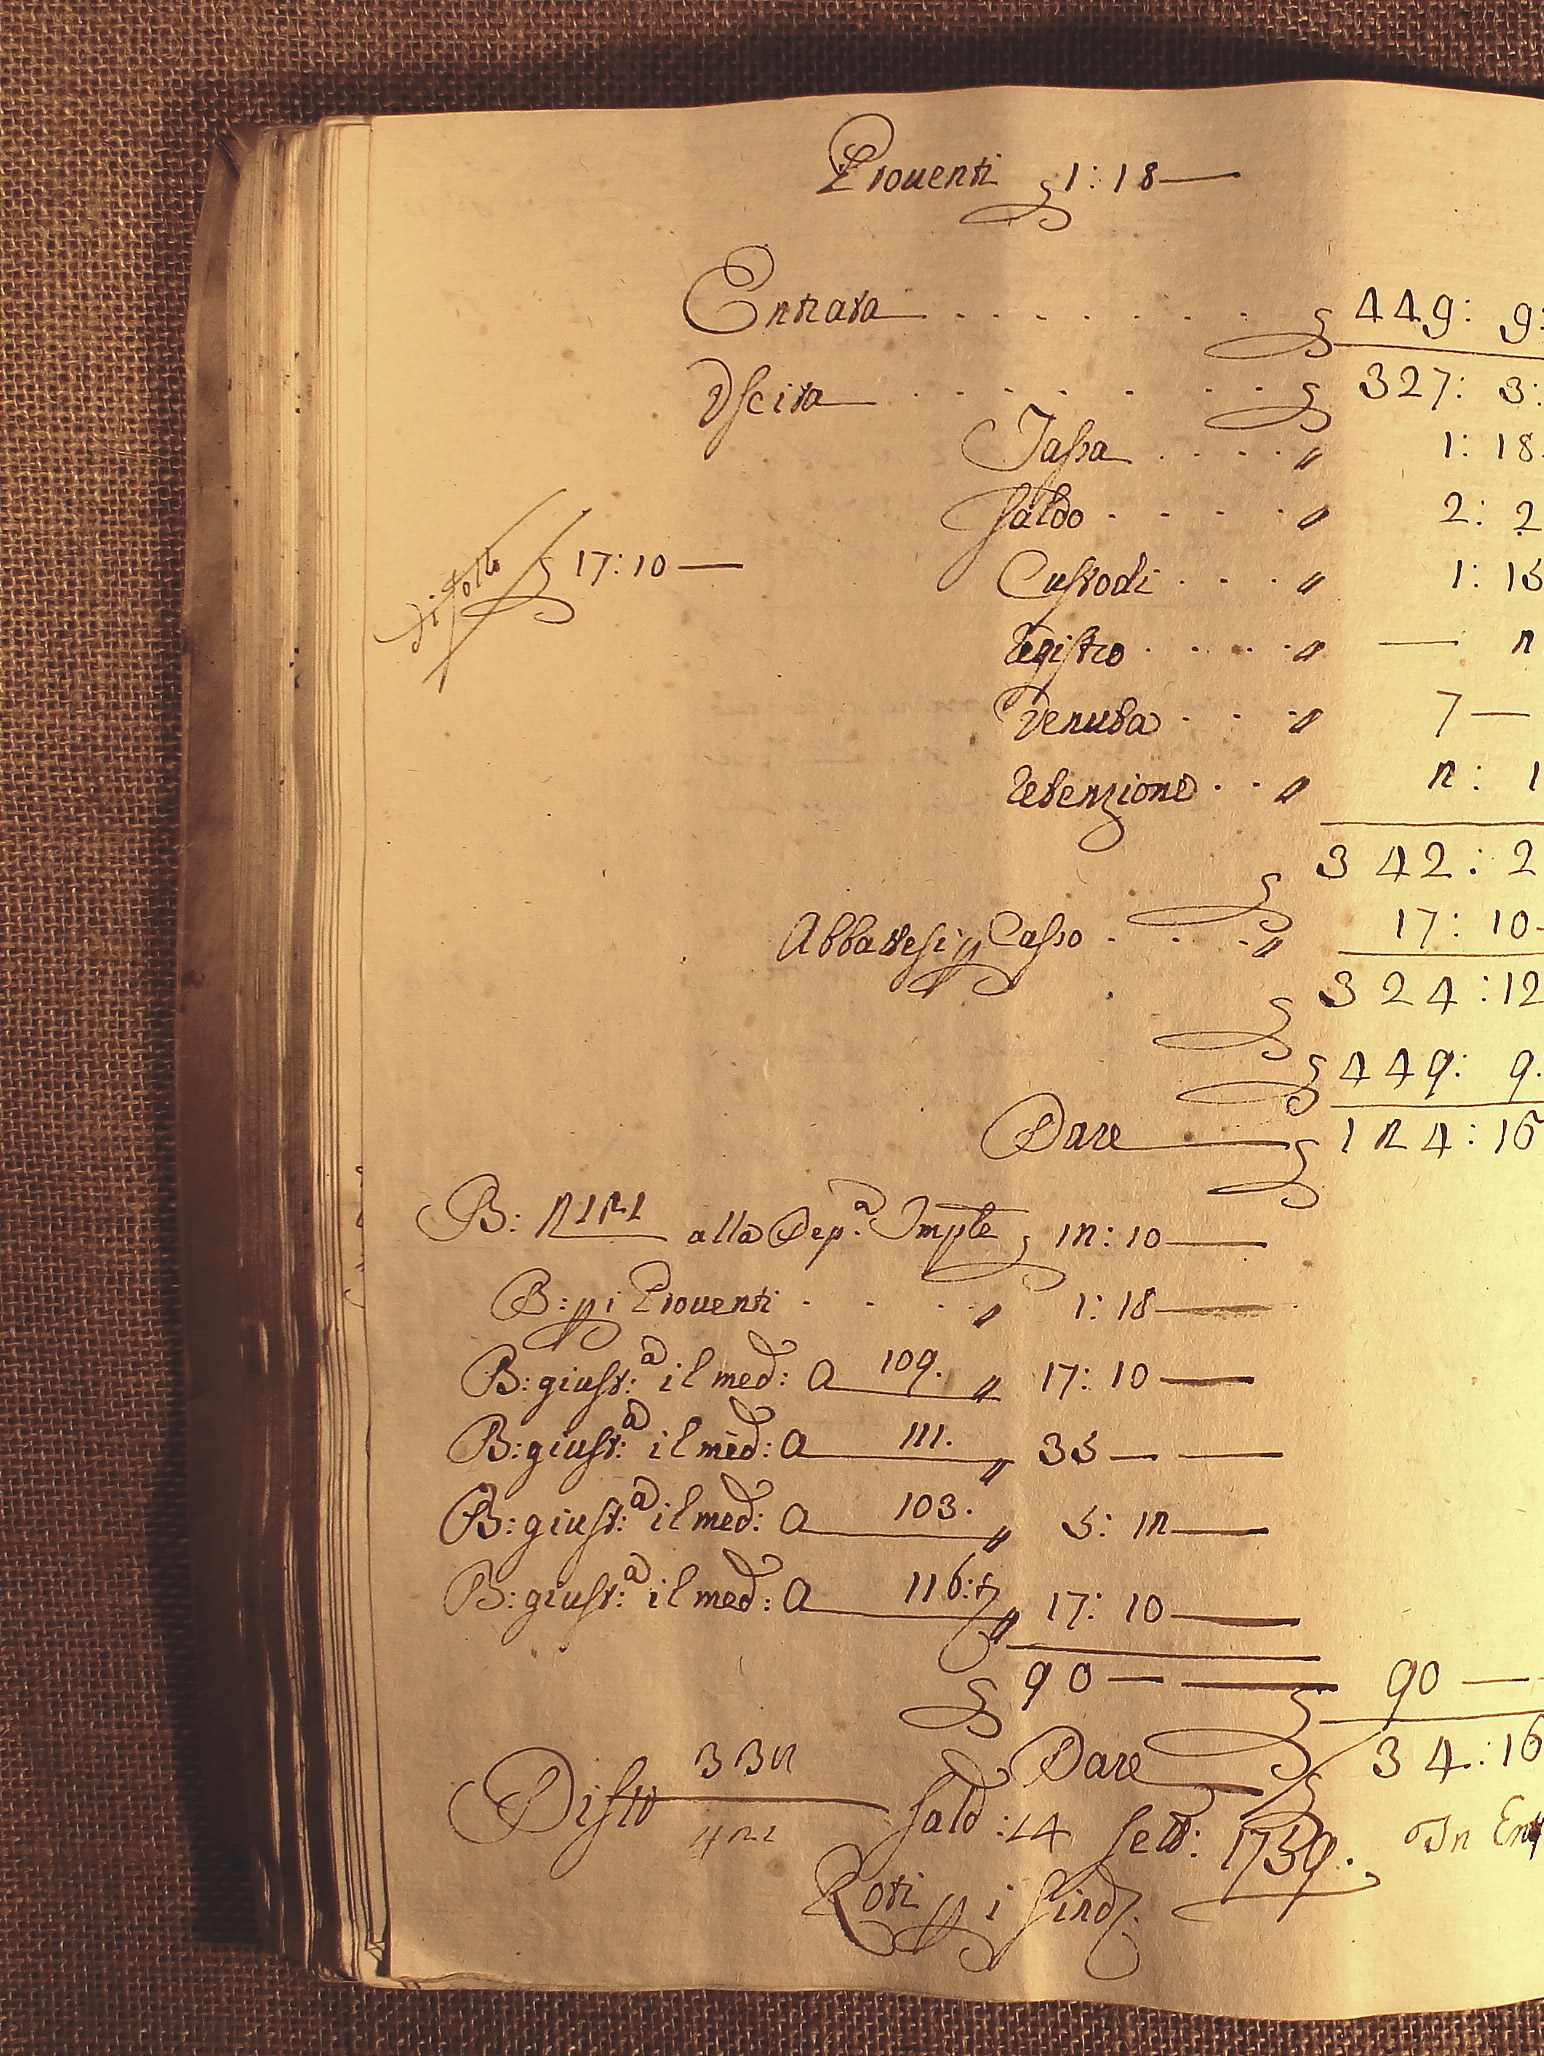 Proventi § 1:18—
Entrata . . . . . . . § 449: 9:
Vscita . . . . . . § 327: 3:
Tassa . . . . " 1: 18
Saldo . . . . " 2: 2
Custodi . . . " 1: 15
Registro . . . . " — n
di sotto § 17:10 —
Venuta . . . " 7 —
Retenzione . . " n: 1
§ 342: 2
Abbatesi p Casso . . . . " 17: 10
§ 324:12
§ 449: 9.
Dare § 1n4:16
B: n1n1 alla Dep:a Imple § 1n:10 —
B: p i Proventi . . . . " 1:18 —
B: giust:a il med: a 109. " 17:10 —
B: giust:a il med: a 111. " 35 — —
B: giust:a il med: a 103. " 5: 1n —
B: giust:a il med: a 116:t " 17: 10 —
§ 90 — — 90 —
Dare § 34:16
Disto 33n Sald: 14 Sett: 1759. In
4n1
Roti p i Sind